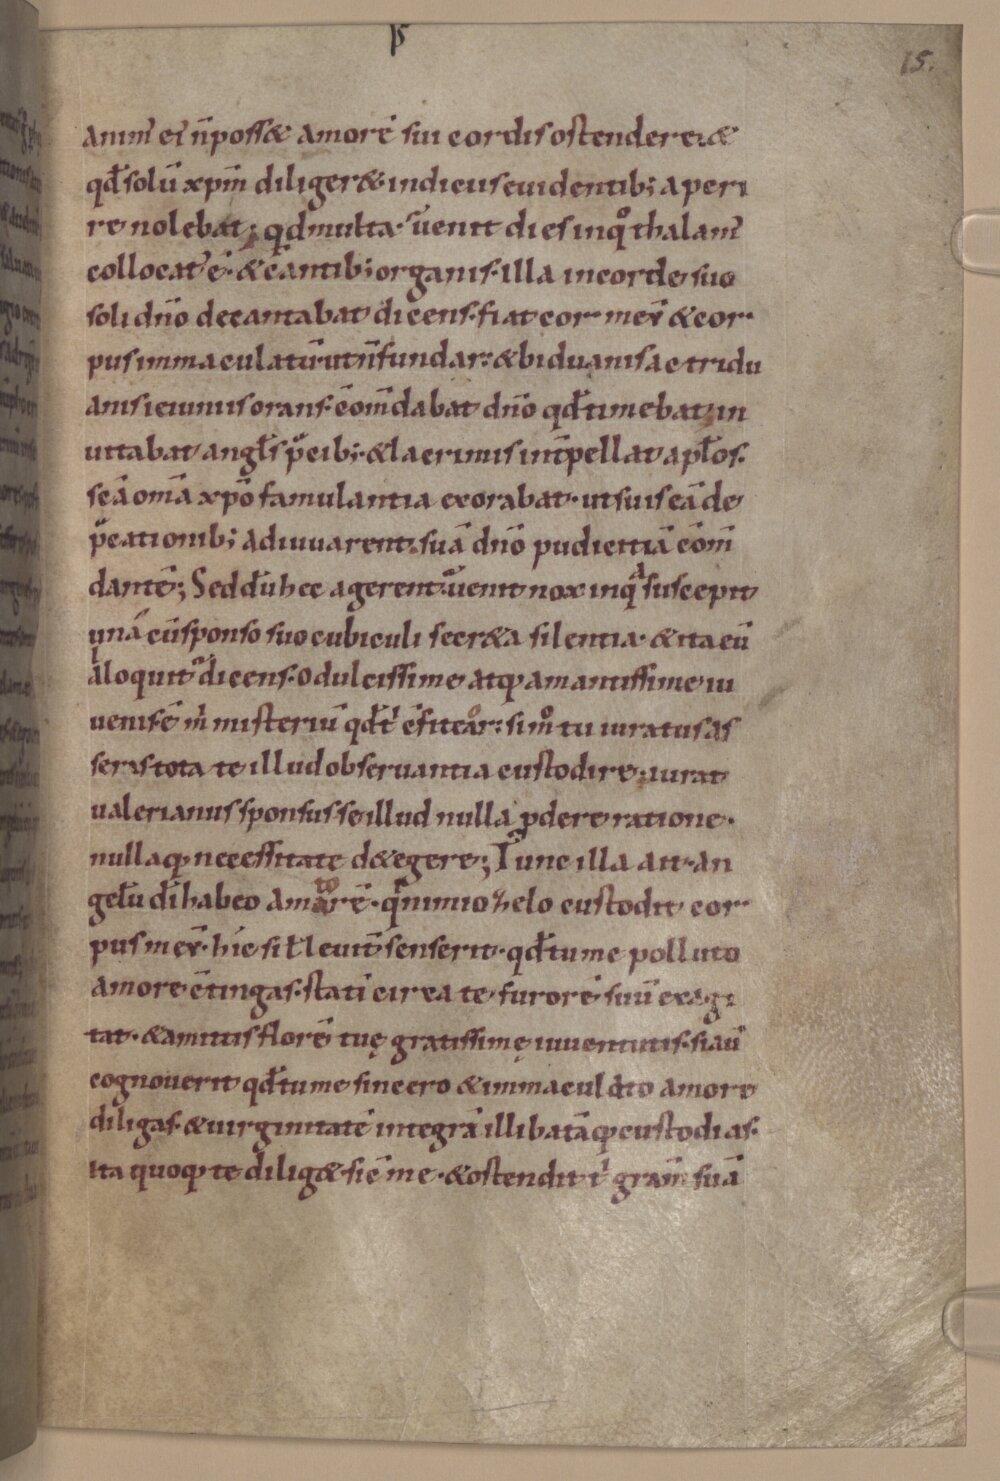 ꝓ
15.
anim̄ ei n̄ poss& amorē sui cordis ostendere. &
qđ solū xp̄m diliger& indiciis euidentib; aperi
re nolebat; qđ multa. uenit dies inqͦ thalam̄
collocat' ē. & c̄antib; organis. illa in corde suo
soli dn̄o decantabat dicens. fiat cor meū & cor
pus immaculatū. ut n̄ fundar. & biduanis ac tridu
anis ieiuniis orans. c̄om̄dabat dn̄o qđ timebat. in
uitabat angl̄s p̄cib; & lacrimis int̄pellat apl̄os.
sc̄ā om̄ā xp̄o famulantia exorabat. ut suis eā de
p̄cationib; adiuuarent. suā dn̄o pudicitiā c̄om̄
dantē; Sed dū hec agerent. uenit nox inqᵃ suscepit
unā cū sponso suo cubiculi secr&a silentia. & ita eū
alloquit' dicens. O dulcissime atq; amantissime iu
uenis ē m̄ misteriū qđ t' c̄fitear. si mͦ tu iuratus as
seras tota te illud obseruantia custodire. iurat
ualerianus sponsus se illud nulla ꝓdere ratione.
nullaq; necessitate d&egere; Tunc illa ait. an
gelū di habeo amatorē. qͥ nimio zelo custodit cor
pus meū. hic si t̄ leuit̄ senserit. qđ tu me polluto
amore c̄tingas. stati circa te furorē suū exagi
tat. & amittis florē tuę gratissimę iuuentutis. si aū
cognouerit qđ tu me sincero & immaculato amore
diligas. & uirginitatē integrā illibatāq; custodias.
Ita quoq; te dilig& sic me. & ostendit t' gr̄am suā